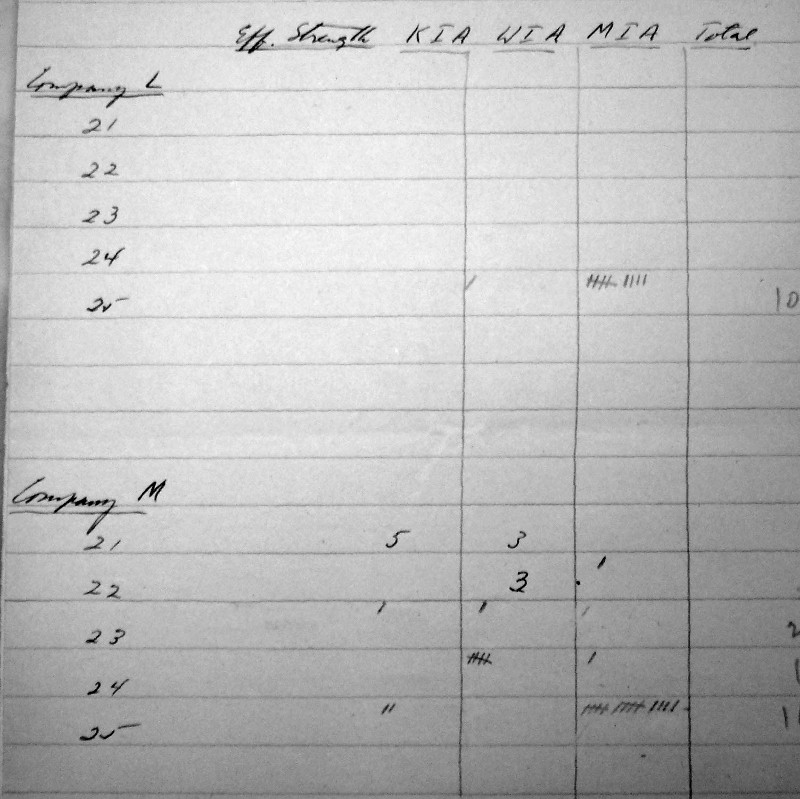 Eff. Strength KIA WIA MIA Total
Company L
21
22
23
24
25 10
Company M
21 5 3
22 3
23
24
25